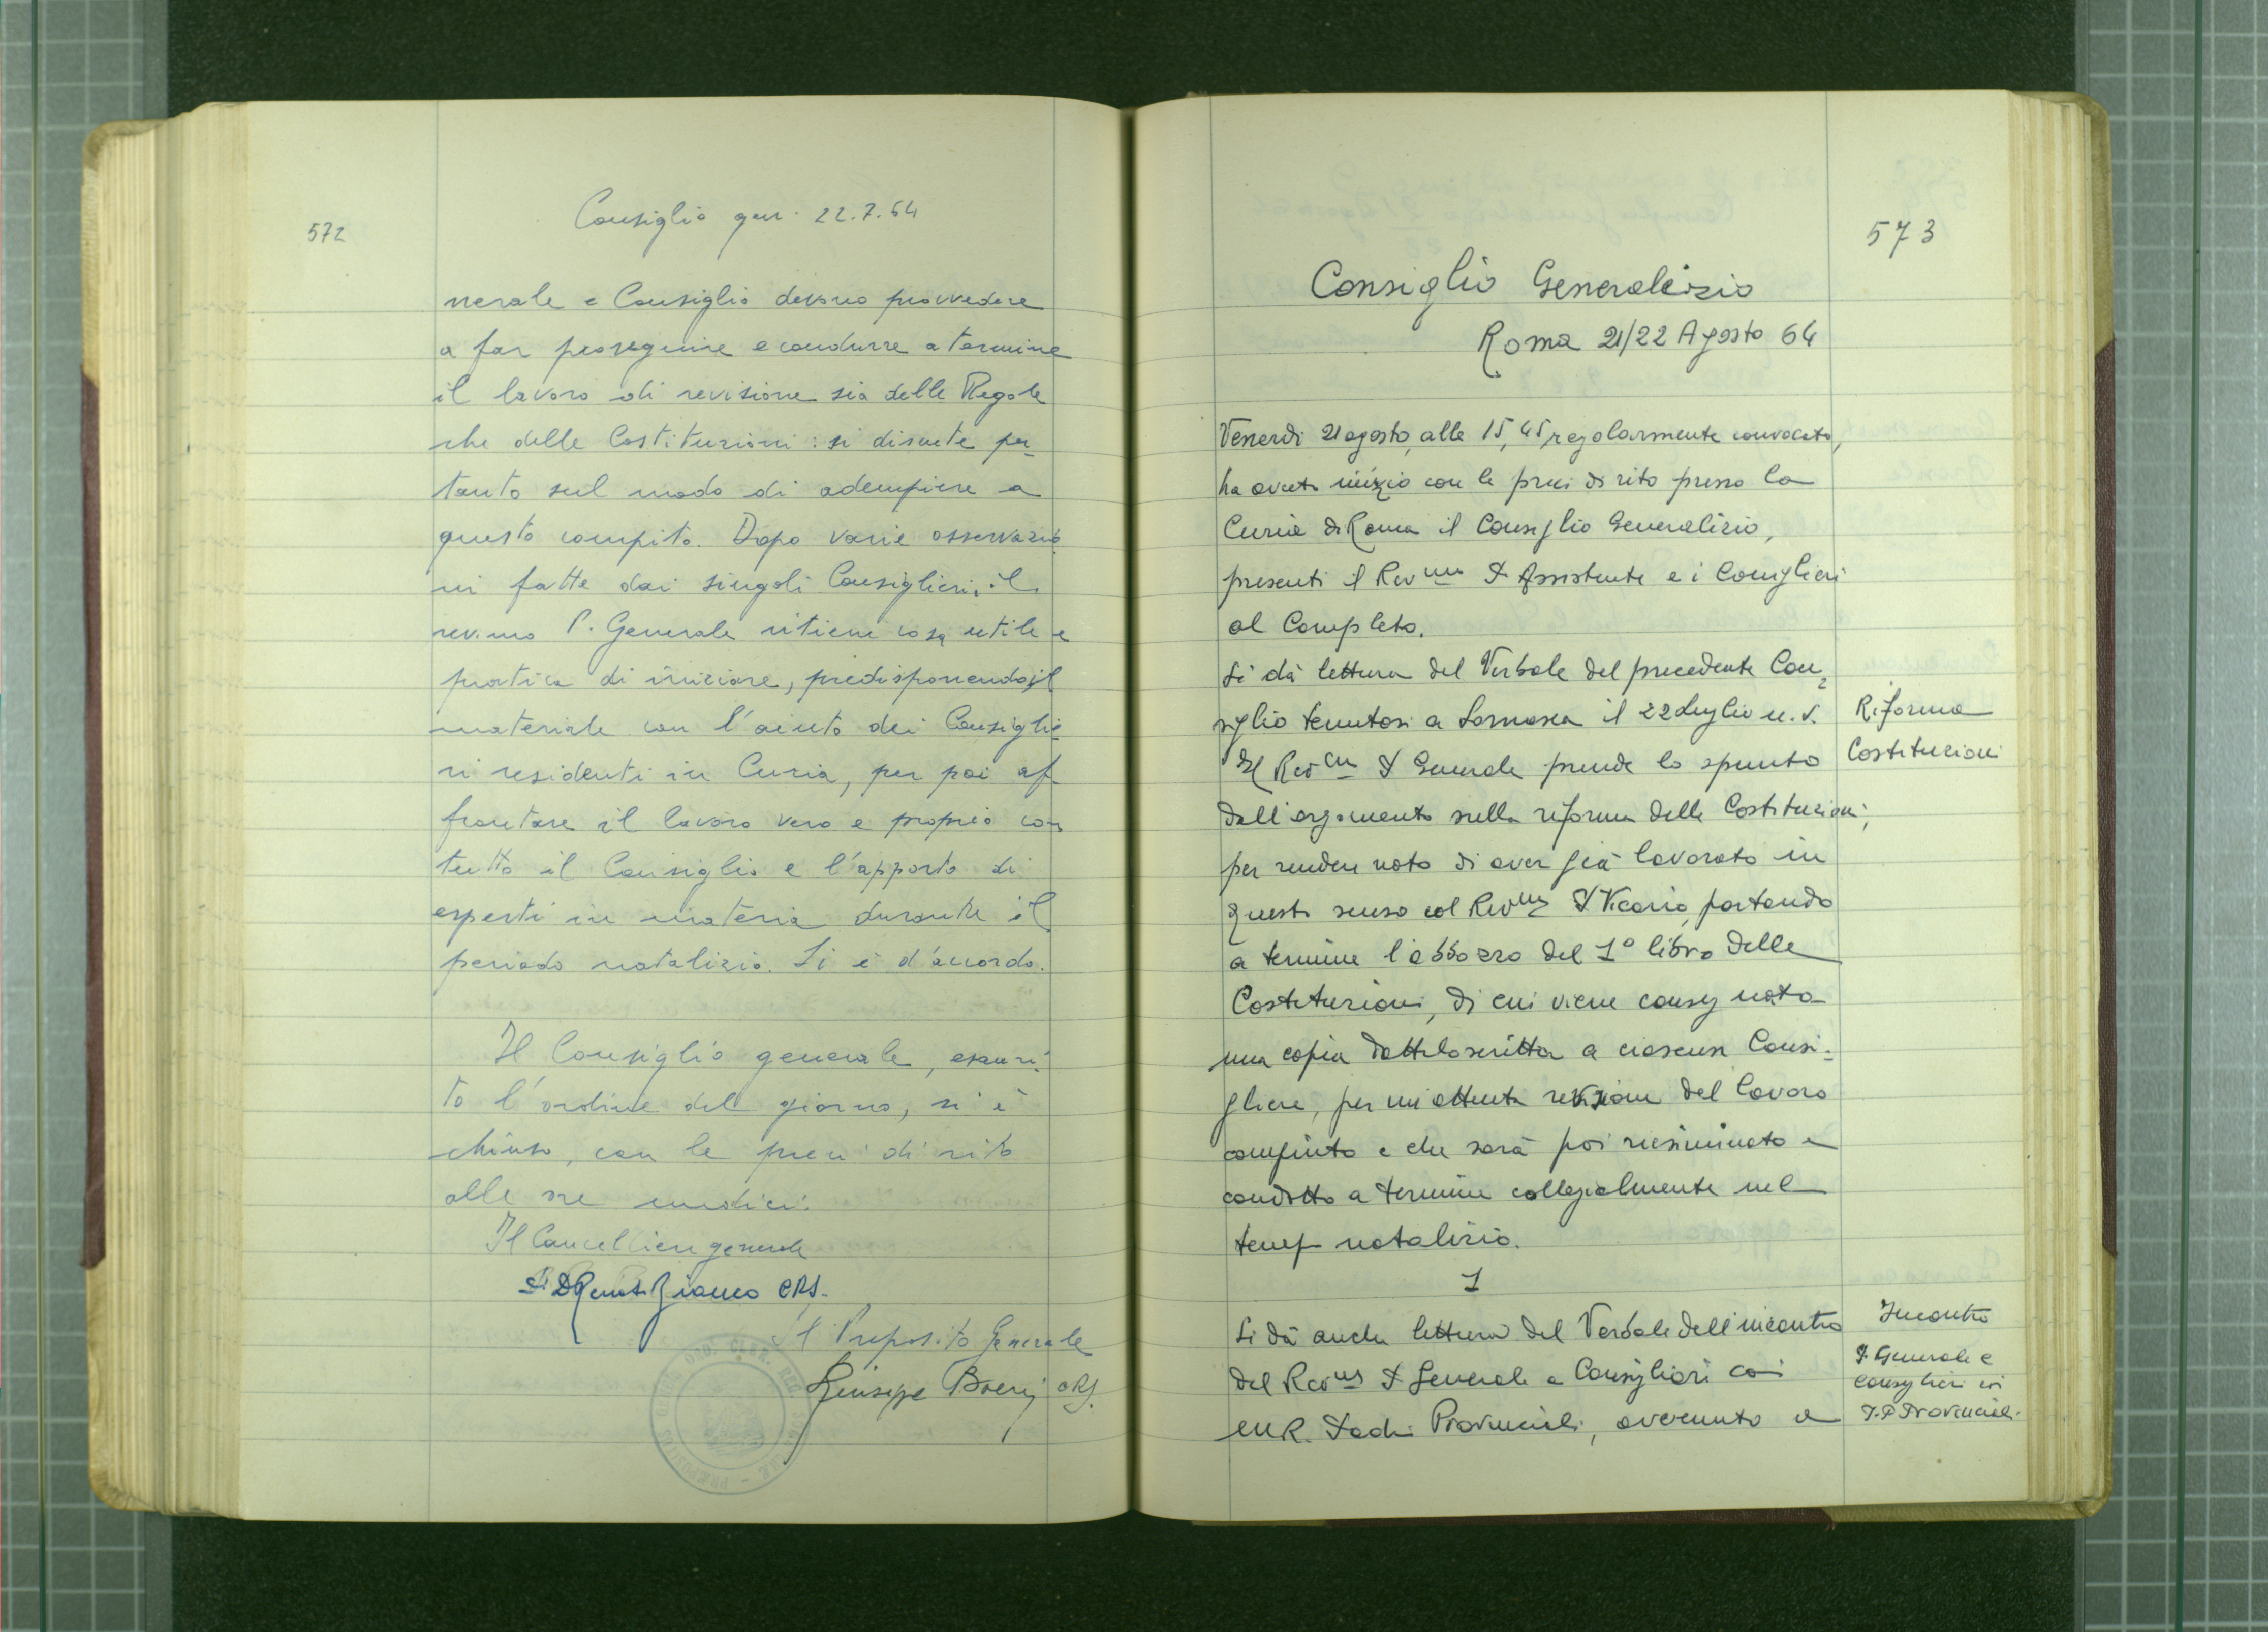 572
Consiglio gen. 22.7.64
nerale e Consiglio devono provvedere
a far proseguire e condurre a termine
il lavoro di revisione sia delle Regole
che delle Costituzioni: si discute per-
tanto sul modo di adempiere a
questo compito. Dopo varie osservazio-
ni fatte dai singoli Consiglieri, il
rev.mo P. Generale ritiene cosa utile e
pratica di iniziare, predisponendo il
materiale con l'aiuto dei Consiglie-
ri residenti in Curia, per poi af
frontare il lavoro vero e proprio con
tutto il Consiglio e l'apporto di
esperti in materia durante il
periodo natalizio. Si è d'accordo.
Il Consiglio generale, esauri-
to l'ordine del giorno, si è
chiuso, con le preci di rito
alle ore undici.
Il Cancelliere generale
Bianco CRS.
Il Preposito Generale
Giuseppe Boeri CRS.
573
Consiglio Generalizio
Roma 21/22 Agosto 64
Venerdì 21 agosto, alle 15,45, regolarmente convocato,
ha avuto inizio con le preci di rito presso la
Curia di Roma il Consiglio Generalizio,
presenti il Rev.mo P. Assistente e i Consiglieri
al Completo.
Si dà lettura del Verbale del precedente Con-
siglio tenutosi a Somasca il 22 luglio u.s.
Il Rev.mo P. Generale prende lo spunto
dall'argomento sulla riforma delle Costituzioni,
per rendere noto di aver già lavorato in
questo senso col Rev.mo P. Vicario, portando
a termine l'abbozzo del 1° libro delle
Costituzioni, di cui viene consegnata
una copia dattiloscritta a ciascun Consi-
gliere, per un'attenta revisione del lavoro
compiuto e che sarà poi riesaminato e
condotto a termine collegialmente nel
temp natalizio.
Riforma
Costituzioni
1
Si dà anche lettura del Verbale dell'incontro
del Rev.mo P. Generale e Consiglieri coi
M.R. Padri Provinciali, avvenuto a
Incontro
P. Generale e
Consiglieri coi
P.P. Provinciali.